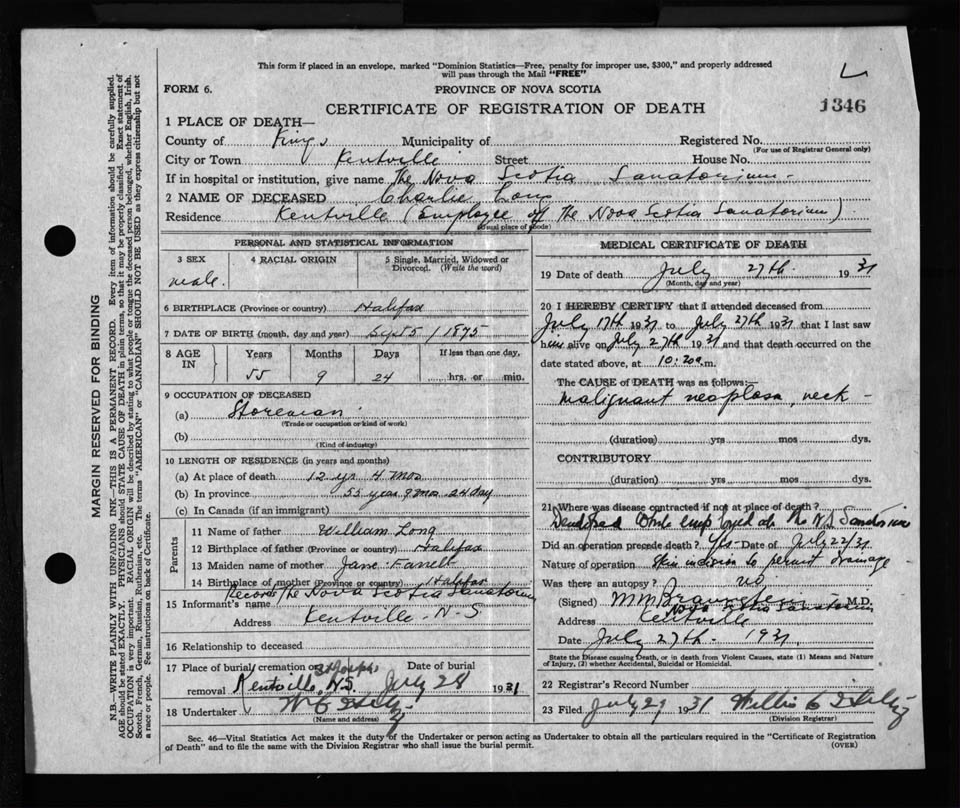 This form if placed in an envelope, marked "Dominion Statistics—Free, penalty for improper use, $300," and properly addressed
will pass through the Mail "FREE"
FORM 6.
PROVINCE OF NOVA SCOTIA
CERTIFICATE OF REGISTRATION OF DEATH
1346
1 PLACE OF DEATH—
County of Kings Municipality of Registered No.
(For use of Registrar General only)
City or Town Kentville Street House No.
If in hospital or institution, give name The Nova Scotia Sanatorium—
2 NAME OF DECEASED Charlie Long
Residence Kentville (Employee of The Nova Scotia Sanatorium)
(Usual place of abode)
PERSONAL AND STATISTICAL INFORMATION
3 SEX
male.
4 RACIAL ORIGIN
5 Single, Married, Widowed or
Divorced. (Write the word)
6 BIRTHPLACE (Province or country) Halifax
7 DATE OF BIRTH (month, day and year) Sept 5 / 1875
8 AGE IN
Years Months Days If less than one day,
55 9 24 hrs. or min.
9 OCCUPATION OF DECEASED
(a) Storeman
(Trade or occupation or kind of work)
(b)
(Kind of industry)
10 LENGTH OF RESIDENCE (in years and months)
(a) At place of death 12 yr 4 mos
(b) In province 55 year 9 mos 24 day
(c) In Canada (if an immigrant)
Parents
11 Name of father William Long
12 Birthplace of father (Province or country) Halifax
13 Maiden name of mother Jane
14 Birthplace of mother (Province or country) Halifax
Records The Nova Scotia Sanatorium
15 Informant's name
Address Kentville - N-S
16 Relationship to deceased
17 Place of burial, cremation or St Joseph's Date of burial
removal Kentville, N.S. July 28 1931
18 Undertaker W C
(Name and address)
MEDICAL CERTIFICATE OF DEATH
19 Date of death July 27th 1931
(Month, day and year)
20 I HEREBY CERTIFY that I attended deceased from
July 17th 1931 to July 27th 1931 that I last saw
him alive on July 27th 1931 and that death occurred on the
date stated above, at 10:20 a.m.
The CAUSE of DEATH was as follows:—
Malignant neoplasm, neck—
(duration) yrs mos dys.
CONTRIBUTORY
(duration) yrs mos dys.
21 Where was disease contracted if not at place of death?
Developed while employed at the N.S Sanatorium
Did an operation precede death? Yes- Date of July 22/31
Nature of operation Skin incision to permit drainage
Was there an autopsy? no
(Signed) M.D.
Nova Scotia Sanatorium
Address Kentville
Date July 27th 1931
State the Disease causing Death, or in death from Violent Causes, state (1) Means and Nature
of Injury, (2) whether Accidental, Suicidal or Homicidal.
22 Registrar's Record Number
23 Filed July 29 1931 Willis C
(Division Registrar)
Sec. 46—Vital Statistics Act makes it the duty of the Undertaker or person acting as Undertaker to obtain all the particulars required in the "Certificate of Registration
of Death" and to file the same with the Division Registrar who shall issue the burial permit.
(OVER)
MARGIN RESERVED FOR BINDING
N.B.—WRITE PLAINLY WITH UNFADING INK—THIS IS A PERMANENT RECORD. Every item of information should be carefully supplied.
AGE should be stated EXACTLY. PHYSICIANS should STATE CAUSE OF DEATH in plain terms, so that it may be properly classified. Exact statement of
OCCUPATION is very important. RACIAL ORIGIN will be described by stating to what people or tongue the deceased person belonged, whether English, Irish,
Scotch, French, German, Russian, Ruthenian, etc. The terms "AMERICAN" or "CANADIAN" SHOULD NOT BE USED as they express citizenship but not
a race or people. See instructions on back of Certificate.